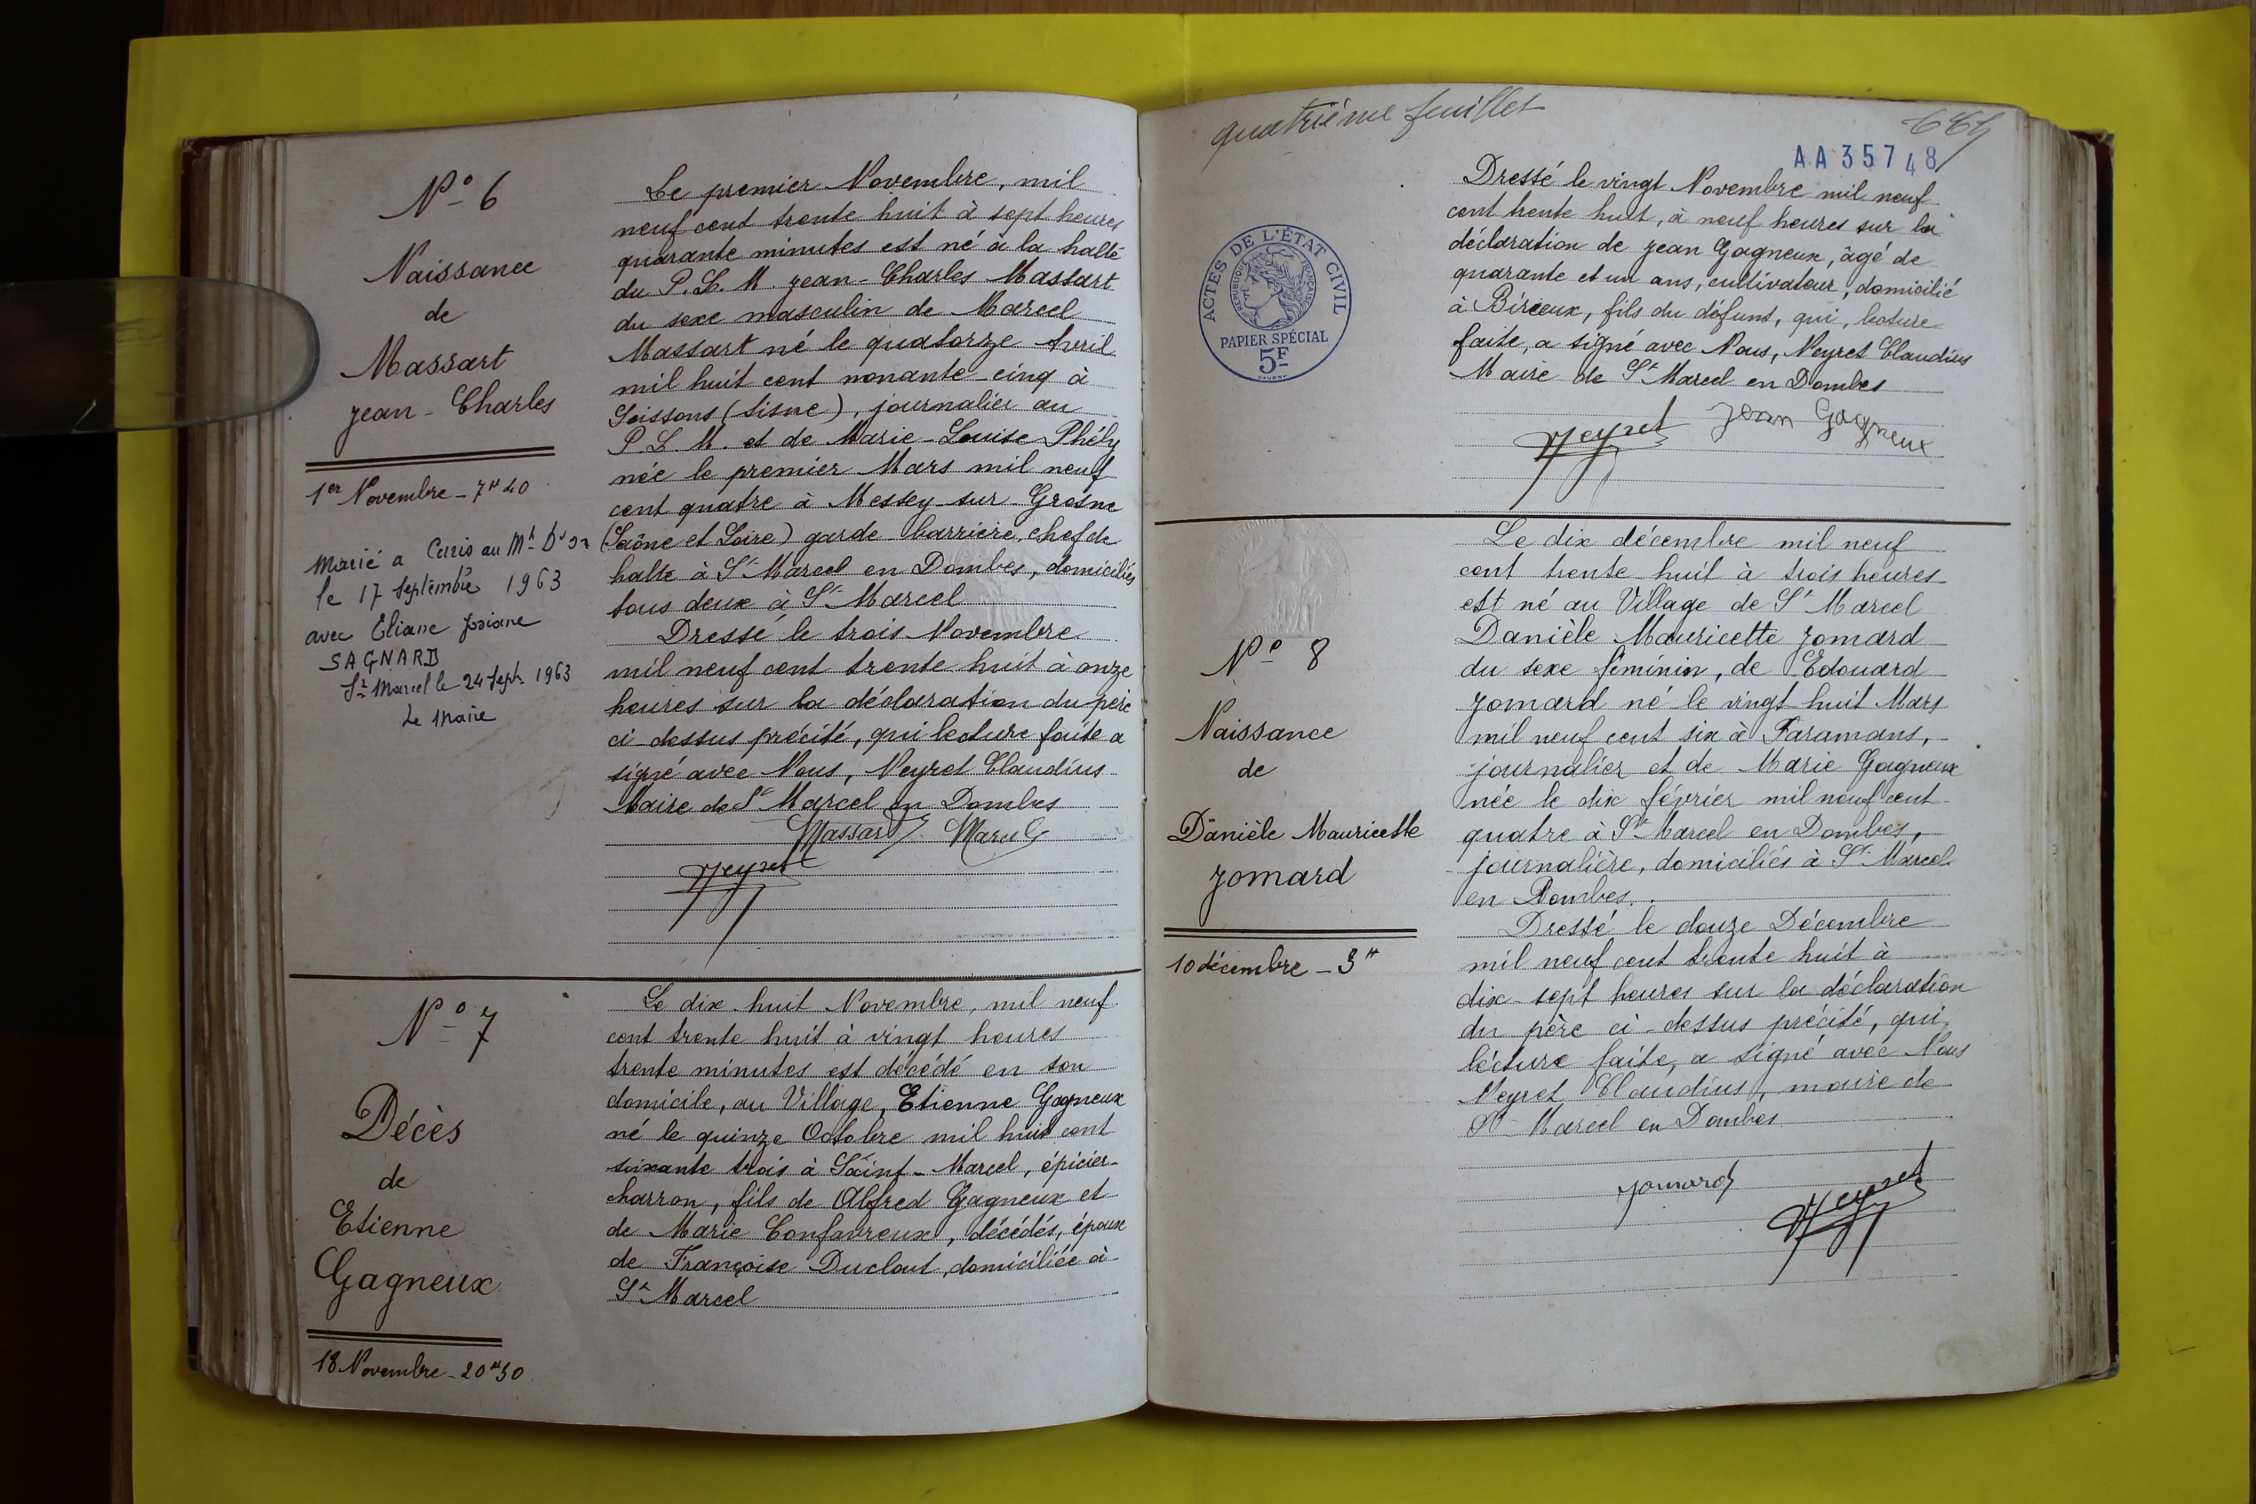 N° 6
Naissance
de
Massart
Jean-Charles
1er Novembre - 7H40
Marié a au Mt D'or
le 17 Septembre 1963
avec Eliane Josiane
SAGNARD
St Marcel le 24 Sept. 1963
Le Maire
Le premier Novembre, mil
neuf cent trente huit à sept heures
quarante minutes est né à la halte
du P. L. M. Jean-Charles Massart
du sexe masculin de Marcel
Massart né le quatorze Avril
mil huit cent nonante-cinq à
Soissons (Aisne), journalier au
P. L. M. et de Marie-Louise Phély
née le premier Mars mil neuf
cent quatre à Messey-sur-Grosne
(Saône et Loire) garde-barrière, chef de
halte à St Marcel en Dombes, domiciliés
tous deux à St Marcel
Dressé le trois Novembre
mil neuf cent trente huit à onze
heures sur la déclaration du père
ci-dessus précité, qui lecture faite a
signé avec Nous, Neyret Claudius
Maire de St Marcel en Dombes
Massart Marcel
Neyret
N° 7
Décès
de
Etienne
Gagneux
18 Novembre - 20H30
Le dix-huit Novembre, mil neuf
cent trente huit à vingt heures
trente minutes est décédé en son
domicile, au Village, Etienne Gagneux
né le quinze Octobre mil huit cent
soixante trois à Saint-Marcel, épicier-
charron, fils de Alfred Gagneux et
de Marie Confavreux, décédés, époux
de Françoise Duclout, domiciliée à
St Marcel
quatrième feuillet
AA35748
ACTES DE L'ÉTAT CIVIL
RÉPUBLIQUE FRANÇAISE
PAPIER SPÉCIAL
5F
Dressé le vingt Novembre mil neuf
cent trente huit, à neuf heures sur la
déclaration de Jean Gagneux, âgé de
quarante et un ans, cultivateur, domicilié
à Birieux, fils du défunt, qui, lecture
faite, a signé avec Nous, Neyret Claudius
Maire de St Marcel en Dombes
Neyret Jean Gagneux
N° 8
Naissance
de
Danièle Mauricette
Jomard
10 décembre - 3H
Le dix décembre mil neuf
cent trente huit à trois heures
est né au Village de St Marcel
Danièle Mauricette Jomard
du sexe féminin, de Edouard
Jomard né le vingt-huit Mars
mil neuf cent six à Faramans,
journalier et de Marie Gagneux
née le dix février mil neuf cent
quatre à St Marcel en Dombes,
journalière, domiciliés à St Marcel
en Dombes.
Dressé le douze Décembre
mil neuf cent trente huit à
dix-sept heures sur la déclaration
du père ci-dessus précité, qui,
lecture faite, a signé avec Nous
Neyret Claudius, maire de
St Marcel en Dombes
Jomard
Neyret